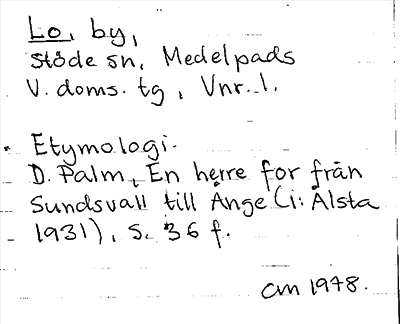 Lo, by,
Stöde sn, Medelpads
V. doms. tg, Vnr. 1.
Etymologi.
D. Palm, En herre for från
Sundsvall till Ånge (i: Ålsta
1931), s. 36 f.
CM 1978.